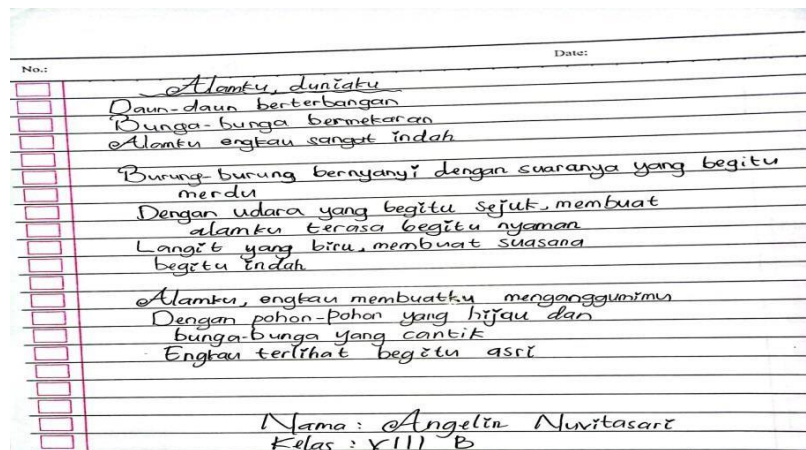 Date:
No.:
Alamku, duniaku
Daun-daun berterbangan
Bunga-bunga bermekaran
Alamku engkau sangat indah
Burung-burung bernyanyi dengan suaranya yang begitu
merdu
Dengan udara yang begitu sejuk, membuat
alamku terasa begitu nyaman
Langit yang biru, membuat suasana
begitu indah
Alamku, engkau membuatku menganggumimu
Dengan pohon-pohon yang hijau dan
bunga-bunga yang cantik
Engkau terlihat begitu asri
Nama : Angelin Nuvitasari
Kelas : VIII B